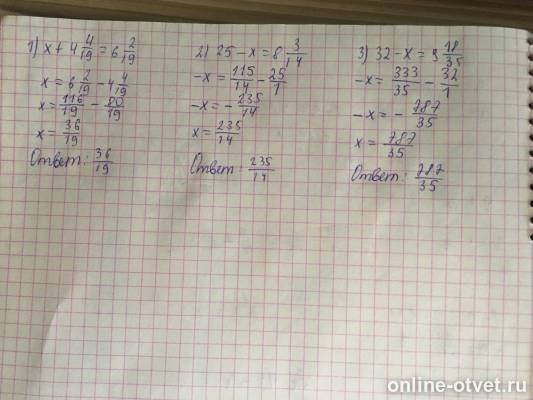 1) x + 4 4/19 = 6 2/19
x = 6 2/19 - 4 4/19
x = 116/19 - 80/19
x = 36/19
Ответ: 36/19
2) 25 - x = 8 3/14
-x = 115/14 - 25/1
-x = - 235/14
x = 235/14
Ответ: 235/14
3) 32 - x = 9 18/35
-x = 333/35 - 32/1
-x = - 787/35
x = 787/35
Ответ: 787/35
online-otvet.ru